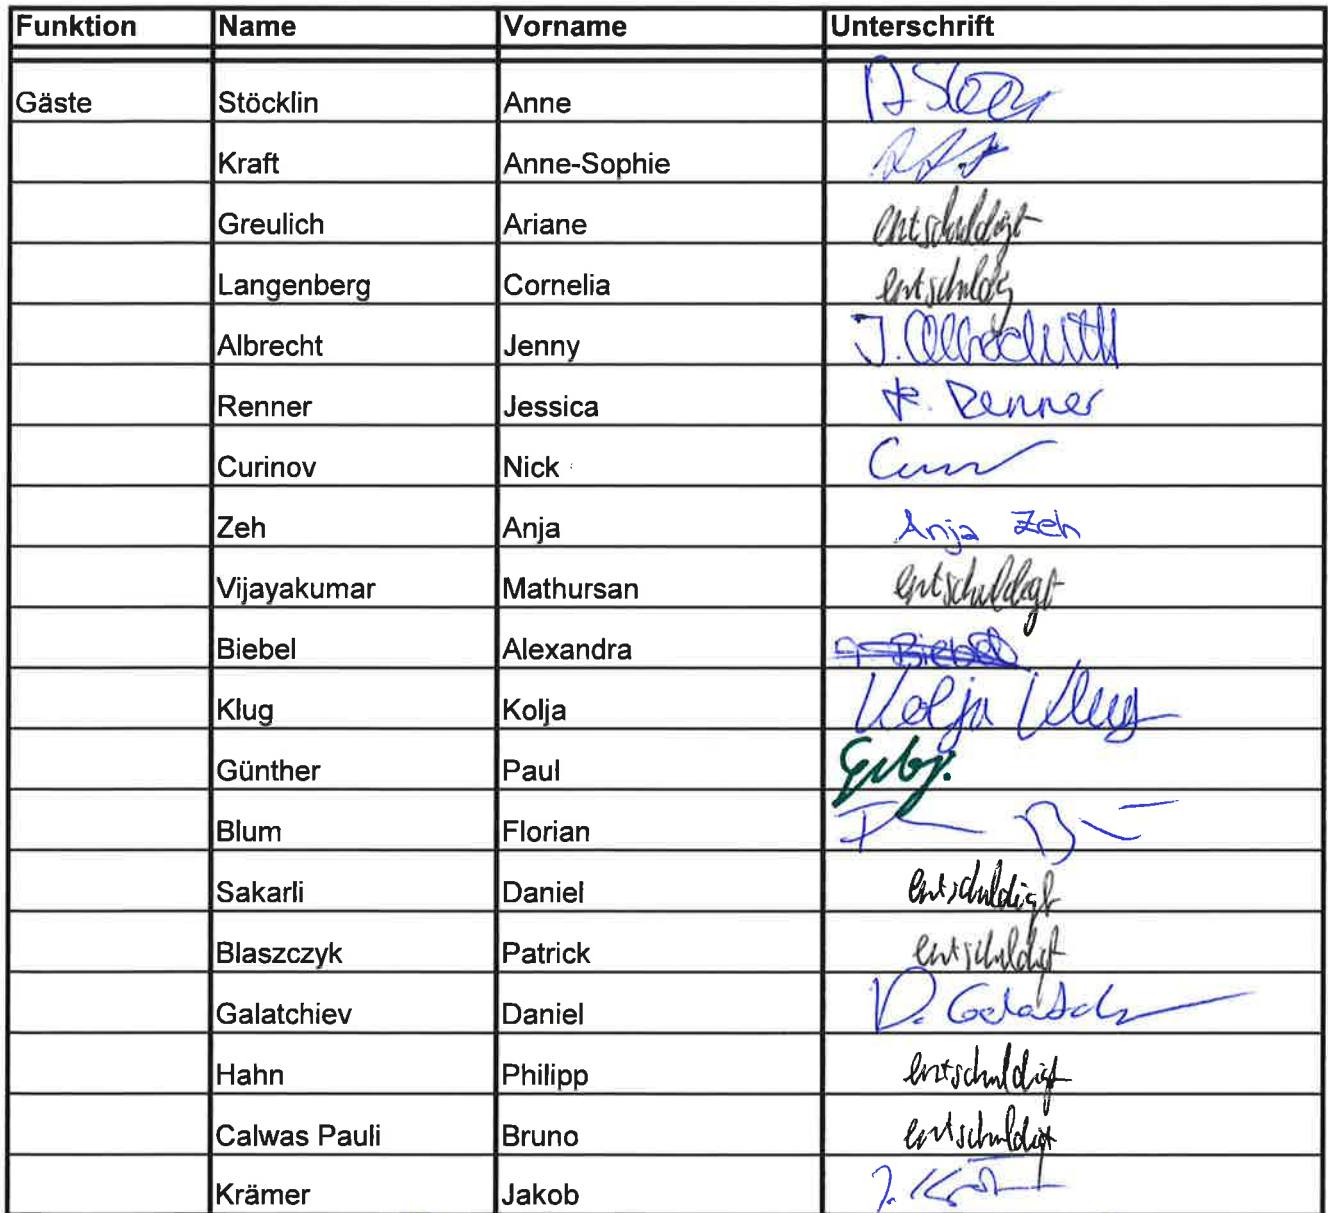 Funktion Name Vorname Unterschrift
Gäste Stöcklin Anne
Kraft Anne-Sophie
Greulich Ariane entschuldigt
Langenberg Cornelia entschuldig
Albrecht Jenny J.
Renner Jessica Renner
Curinov Nick
Zeh Anja Anja Zeh
Vijayakumar Mathursan entschuldigt
Biebel Alexandra Biebel
Klug Kolja Kolja Klug
Günther Paul
Blum Florian
Sakarli Daniel entschuldigt
Blaszczyk Patrick entschuldigt
Galatchiev Daniel D.
Hahn Philipp entschuldigt
Calwas Pauli Bruno entschuldigt
Krämer Jakob J.